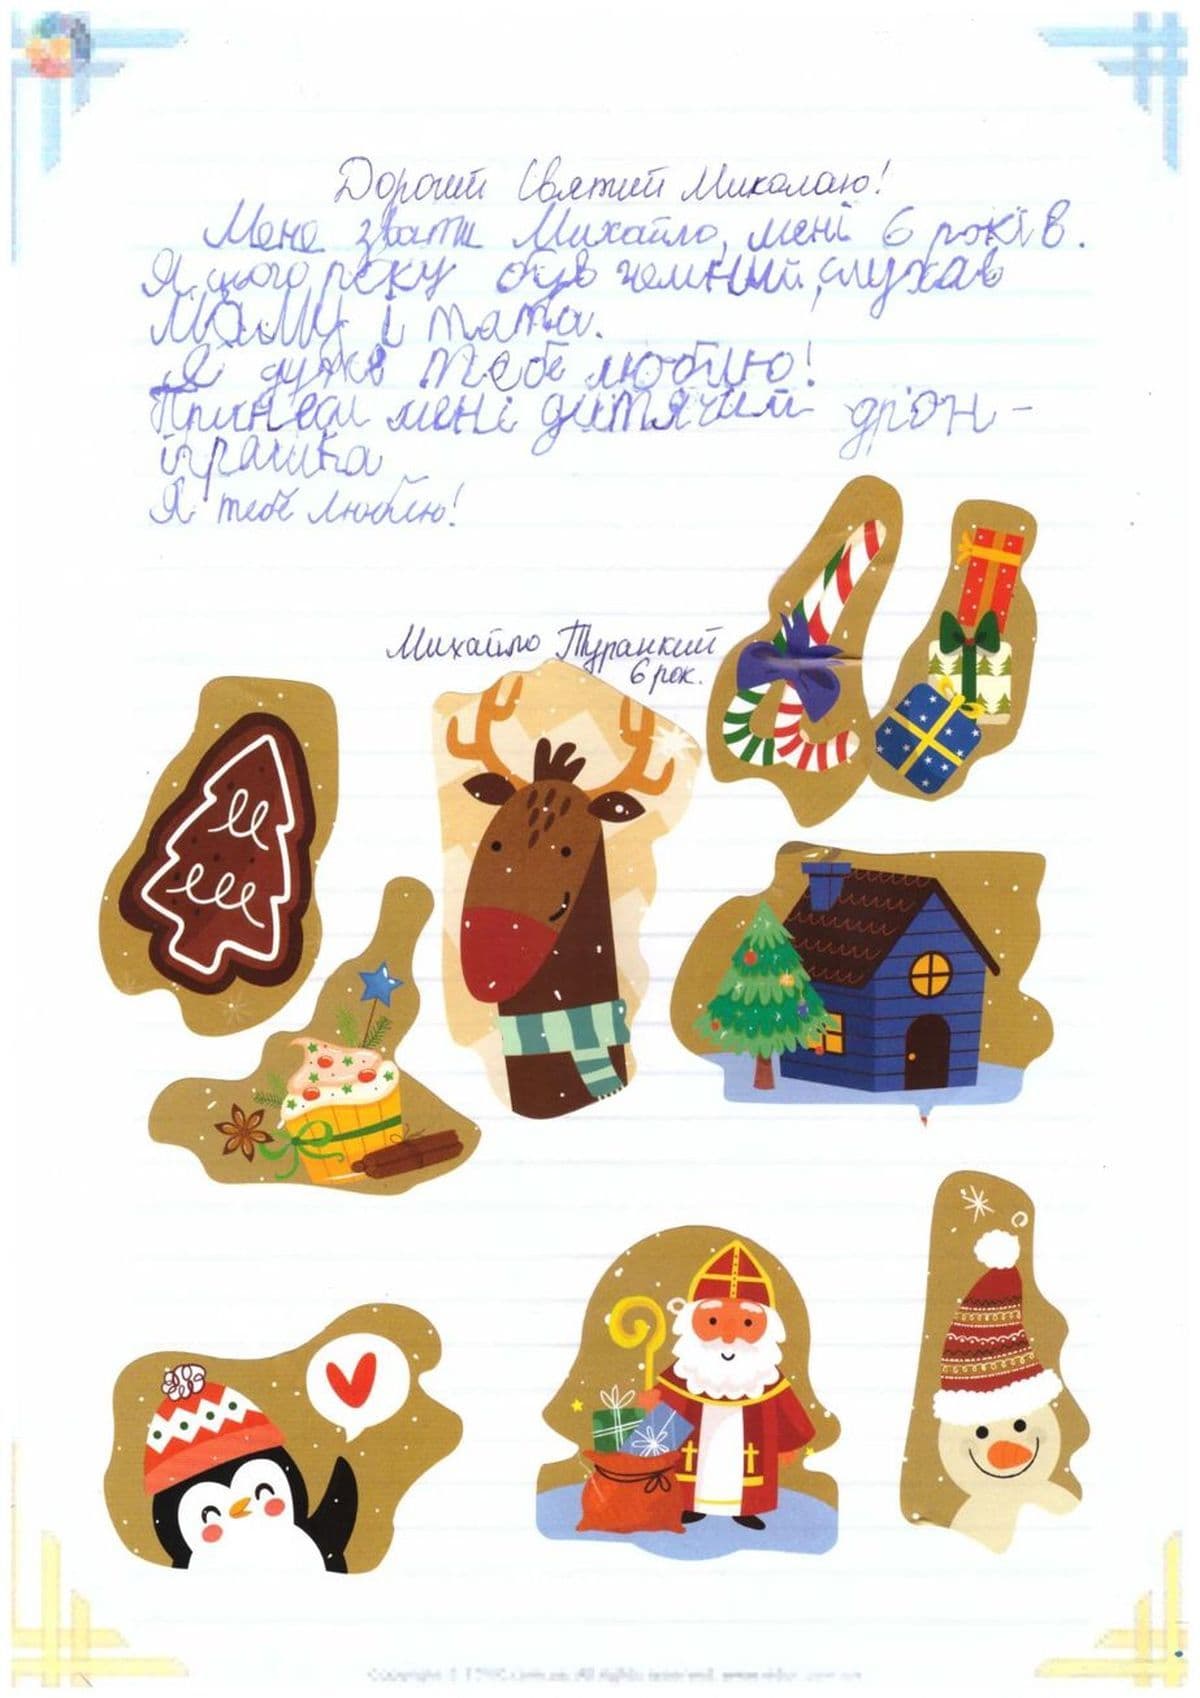 Дорогий Святий Миколаю!
Мене звати Михайло, мені 6 років.
Я цього року був чемний, слухав
маму і тата.
Я дуже тебе люблю!
Принеси мені дитячий дрон-
іграшка
Я тебе люблю!
Михайло Туранкий
6 рок.